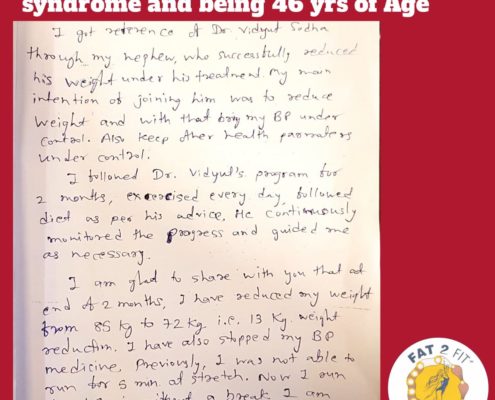 syndrome and being 46 yrs of Age
I got reference of Dr. Vidyut Sodha
through my nephew, who successfully reduced
his weight under his treatment. My main
intention of joining him was to reduce
weight and with that bring my BP under
control. Also keep other health parmaters
under control.
I followed Dr. Vidyut's program for
2 months, excercised every day, followed
diet as per his advice. He continuously
monitored the progress and guided me
as necessary.
I am glad to share with you that at
end of 2 months, I have reduced my weight
from 85 kg to 72 kg i.e. 13 Kg. weight
reduction. I have also stopped my BP
medicine, Previously, I was not able to
run for 5 min at stretch. Now I run
without a break. I am
FAT 2 FIT